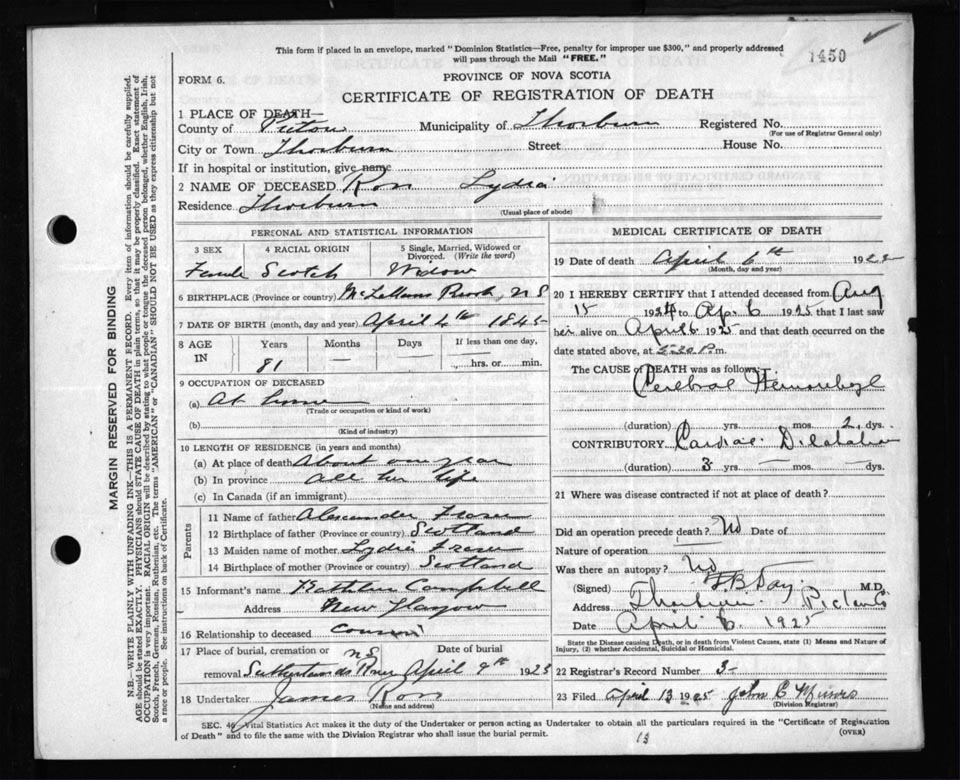 This form if placed in an envelope, marked "Dominion Statistics—Free, penalty for improper use $300," and properly addressed
will pass through the Mail "FREE."
1450
FORM 6.
PROVINCE OF NOVA SCOTIA
CERTIFICATE OF REGISTRATION OF DEATH
MARGIN RESERVED FOR BINDING
N.B.—WRITE PLAINLY WITH UNFADING INK—THIS IS A PERMANENT RECORD. Every item of information should be carefully supplied.
AGE should be stated EXACTLY. PHYSICIANS should STATE CAUSE OF DEATH in plain terms, so that it may be properly classified. Exact statement of
OCCUPATION is very important. RACIAL ORIGIN will be described by stating to what people or tongue the deceased person belonged, whether English, Irish,
Scotch, French, German, Russian, Ruthenian, etc. The terms "AMERICAN" or "CANADIAN" SHOULD NOT BE USED as they express citizenship but not
a race or people. See instructions on back of Certificate.
1 PLACE OF DEATH—
County of Pictou Municipality of Thorburn Registered No.
(For use of Registrar General only)
City or Town Thorburn Street House No.
If in hospital or institution, give name
2 NAME OF DECEASED Ross Lydia
Residence Thorburn
(Usual place of abode)
PERSONAL AND STATISTICAL INFORMATION
3 SEX 4 RACIAL ORIGIN 5 Single, Married, Widowed or
Divorced. (Write the word)
Female Scotch Widow
6 BIRTHPLACE (Province or country) McLellans Brook, N S
7 DATE OF BIRTH (month, day and year) April 4th 1845
8 AGE IN Years Months Days If less than one day,
81 — — hrs. or min.
9 OCCUPATION OF DECEASED
(a) At home
(Trade or occupation or kind of work)
(b)
(Kind of industry)
10 LENGTH OF RESIDENCE (in years and months)
(a) At place of death About one year
(b) In province all her life
(c) In Canada (if an immigrant)
Parents
11 Name of father Alexander Fraser
12 Birthplace of father (Province or country) Scotland
13 Maiden name of mother Lydia Fraser
14 Birthplace of mother (Province or country) Scotland
15 Informant's name Campbell
Address New Glasgow
16 Relationship to deceased cousin
17 Place of burial, cremation or N S Date of burial
removal Sutherlands River April 9th 1925
18 Undertaker James Ross
(Name and address)
MEDICAL CERTIFICATE OF DEATH
19 Date of death April 6th 1925
(Month, day and year)
20 I HEREBY CERTIFY that I attended deceased from Aug
15 1924 to Ap. 6 1925 that I last saw
her alive on April 6 1925 and that death occurred on the
date stated above, at 5:30 P.m.
The CAUSE of DEATH was as follows:
Cerebral Hemorrhage
(duration) yrs. mos. 2 dys.
CONTRIBUTORY Cardiac Dilatation
(duration) 3 yrs. — mos. — dys.
21 Where was disease contracted if not at place of death?
Did an operation precede death? No Date of
Nature of operation
Was there an autopsy? No
(Signed) Day M.D.
Address Thorburn Pictou Co
Date April 6 1925
State the Disease causing Death, or in death from Violent Causes, state (1) Means and Nature of
Injury, (2) whether Accidental, Suicidal or Homicidal.
22 Registrar's Record Number 3
23 Filed April 13 1925 John C
(Division Registrar)
SEC. 40 Vital Statistics Act makes it the duty of the Undertaker or person acting as Undertaker to obtain all the particulars required in the "Certificate of Registration
of Death" and to file the same with the Division Registrar who shall issue the burial permit.
(OVER)
13